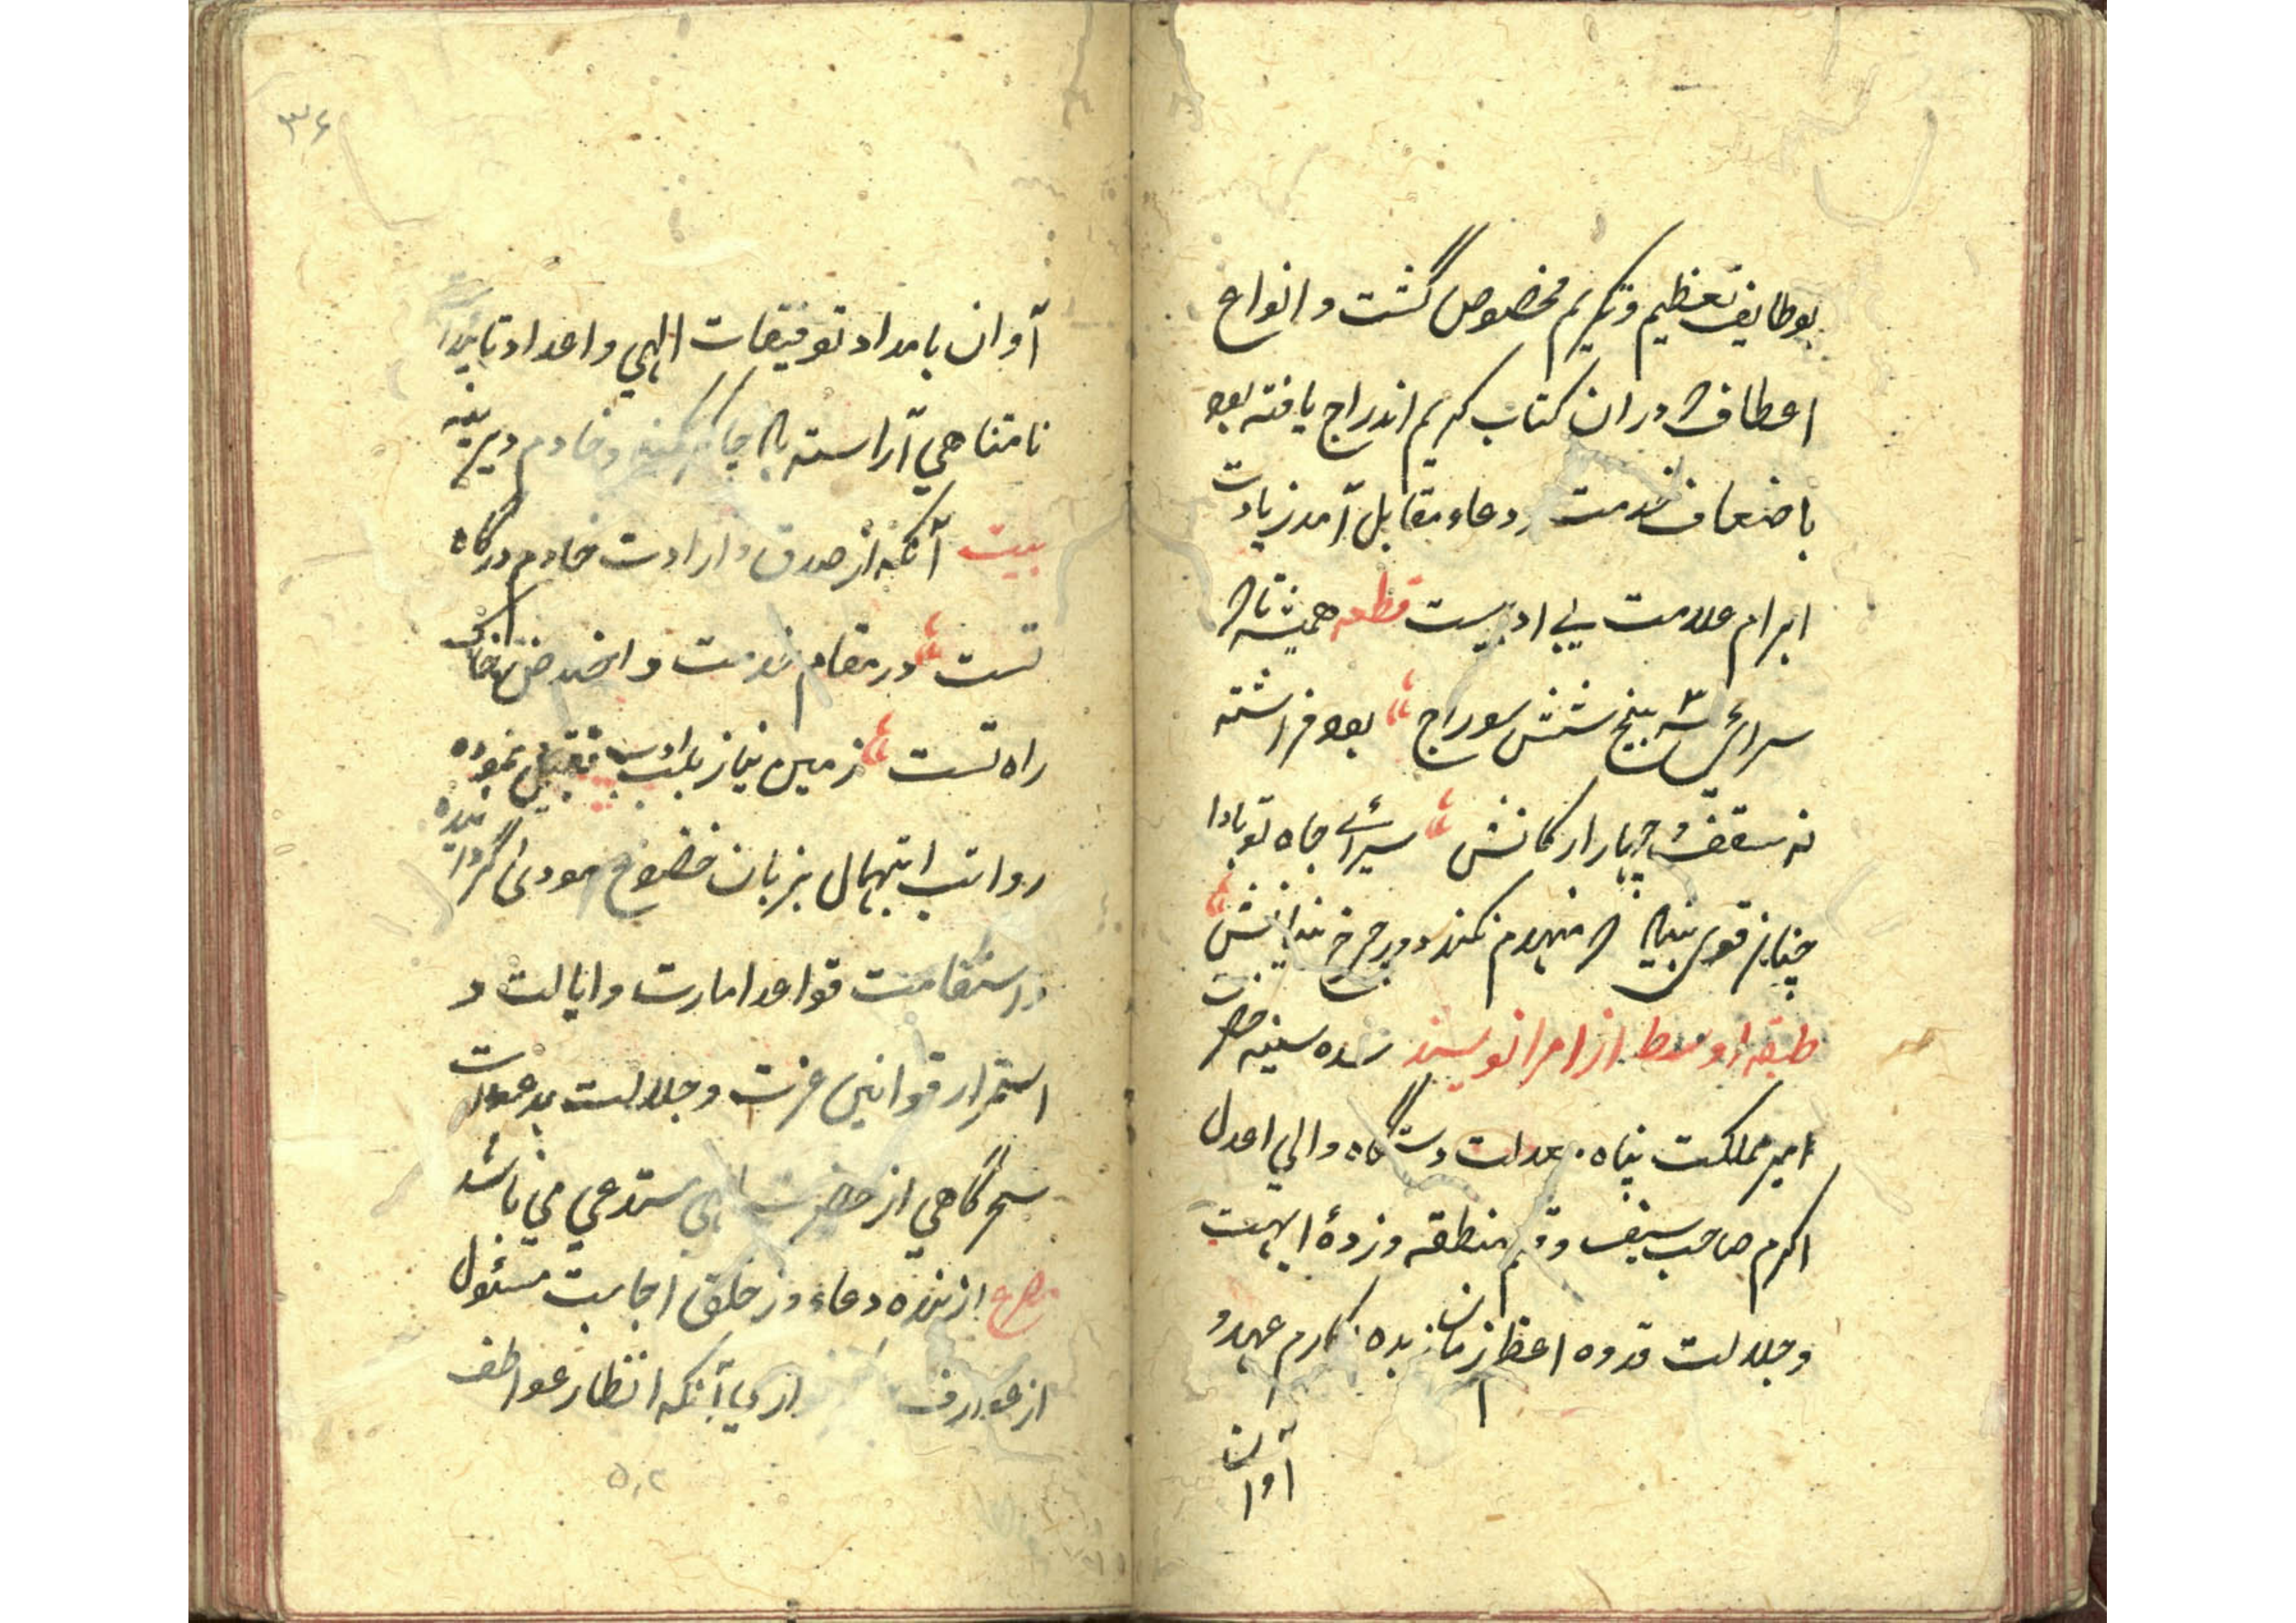 بوظایف تعظیم و تکریم مخصوص گشت و انواع
اعطاف در ان کتاب کریم اندراج یافته بود
باضعاف خدمت و دعاء مقابل آمد زیادت
ابرام علامت بی ادبیست قطعه همیشه تا
سرائی سه پنج شش سوراخ بود فراشته
نه سقف و چهار ارکانش سرائے جاه تو بادا
چنان قوی بنیاد که منهدم نکند دور چرخ
طبقه اوسط از امرا نویسند سده سنیه حضرت
امیر مملکت پناه عدالت دستگاه والی اعدل
اکرم صاحب سیف و قلم منطقه وزدهٔ ابهت
و جلالت قدوه اعظم زمان زبده مکارم عهد و
آوان
۳۶
آوان بامداد توفیقات الهی و اعداد تایید
نامتناهی آراسته باد چاکر کمینه و خادم دیرینه
بیت آنکه از صدق و ارادت خادم درگاه
تست در مقام خدمت و اخلاص خاک
راه تست زمین نیاز بلب ادب تقبیل نموده
رواتب ابتهال بزبان خضوع مودی گردانیده
و استقامت قواعد امارت و ایالت و
استمرار قوانین عزت و جلالت بدعوات
سحرگاهی از حضرت الهی مستدعی می باشد
مصرع از بنده دعاء وز خلق اجابت مسئول
از عوارف از دیا آنکه انظار عواطف